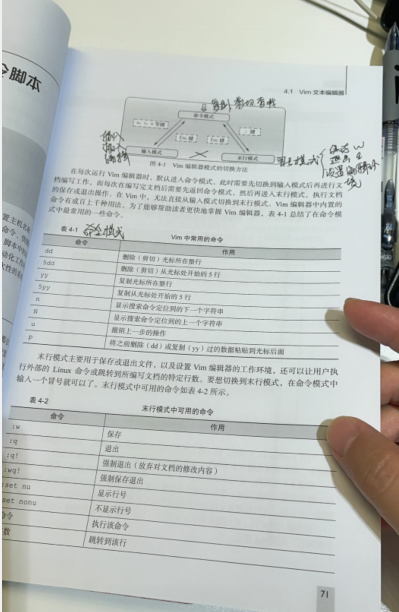 令脚本
4.1 Vim 文本编辑器
命令模式
输入模式
末行模式
图 4-1 Vim 编辑器模式的切换方法
在每次运行 Vim 编辑器时，默认进入命令模式，此时需要先切换到输入模式后再进行文
档编写工作，而每次在编写完文档后需要先返回命令模式，然后再进入末行模式，执行文档
的保存或退出操作。在 Vim 中，无法直接从输入模式切换到末行模式。Vim 编辑器中内置的
命令有成百上千种用法，为了能够帮助读者更快地掌握 Vim 编辑器，表 4-1 总结了在命令模
式中最常用的一些命令。
表 4-1 命令模式
Vim 中常用的命令
命令 作用
dd 删除（剪切）光标所在整行
5dd 删除（剪切）从光标处开始的 5 行
yy 复制光标所在整行
5yy 复制从光标处开始的 5 行
n 显示搜索命令定位到的下一个字符串
N 显示搜索命令定位到的上一个字符串
u 撤销上一步的操作
p 将之前删除（dd）或复制（yy）过的数据粘贴到光标后面
末行模式主要用于保存或退出文件，以及设置 Vim 编辑器的工作环境，还可以让用户执
行外部的 Linux 命令或跳转到所编写文档的特定行数。要想切换到末行模式，在命令模式中
输入一个冒号就可以了。末行模式中可用的命令如表 4-2 所示。
表 4-2
末行模式中可用的命令
命令 作用
:w 保存
:q 退出
:q! 强制退出（放弃对文档的修改内容）
:wq! 强制保存退出
:set nu 显示行号
set nonu 不显示行号
命令 执行该命令
数 跳转到该行
71